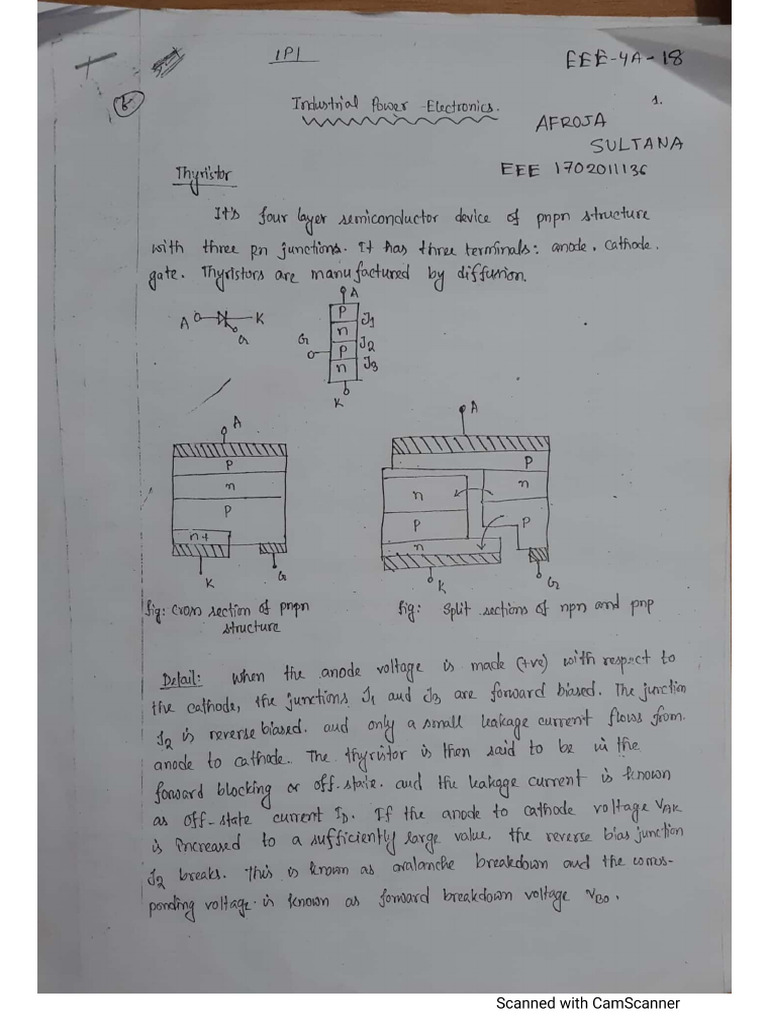 IPI
EEE-4A-18
Industrial Power Electronics.
1.
AFROJA
SULTANA
EEE 1702011136
Thyristor
It's four layer semiconductor device of pnpn structure
with three pn junctions. It has three terminals: anode, cathode,
gate. Thyristors are manufactured by diffusion.
A K G
A
P
n
P
n
J1
J2
J3
G
K
A
P
n
P
n+
K G
A
P
n n
P P
n
K G
fig: Cross section of pnpn
structure
fig: Split sections of npn and pnp
Detail: When the anode voltage is made (+ve) with respect to
the cathode, the junctions J1 and J3 are forward biased. The junction
J2 is reverse biased. and only a small leakage current flows from
anode to cathode. The thyristor is then said to be in the
forward blocking or off-state. and the leakage current is known
as off-state current ID. If the anode to cathode voltage VAK
is increased to a sufficiently large value, the reverse bias junction
J2 breaks. This is known as avalanche breakdown and the corres-
ponding voltage is known as forward breakdown voltage VBO.
Scanned with CamScanner